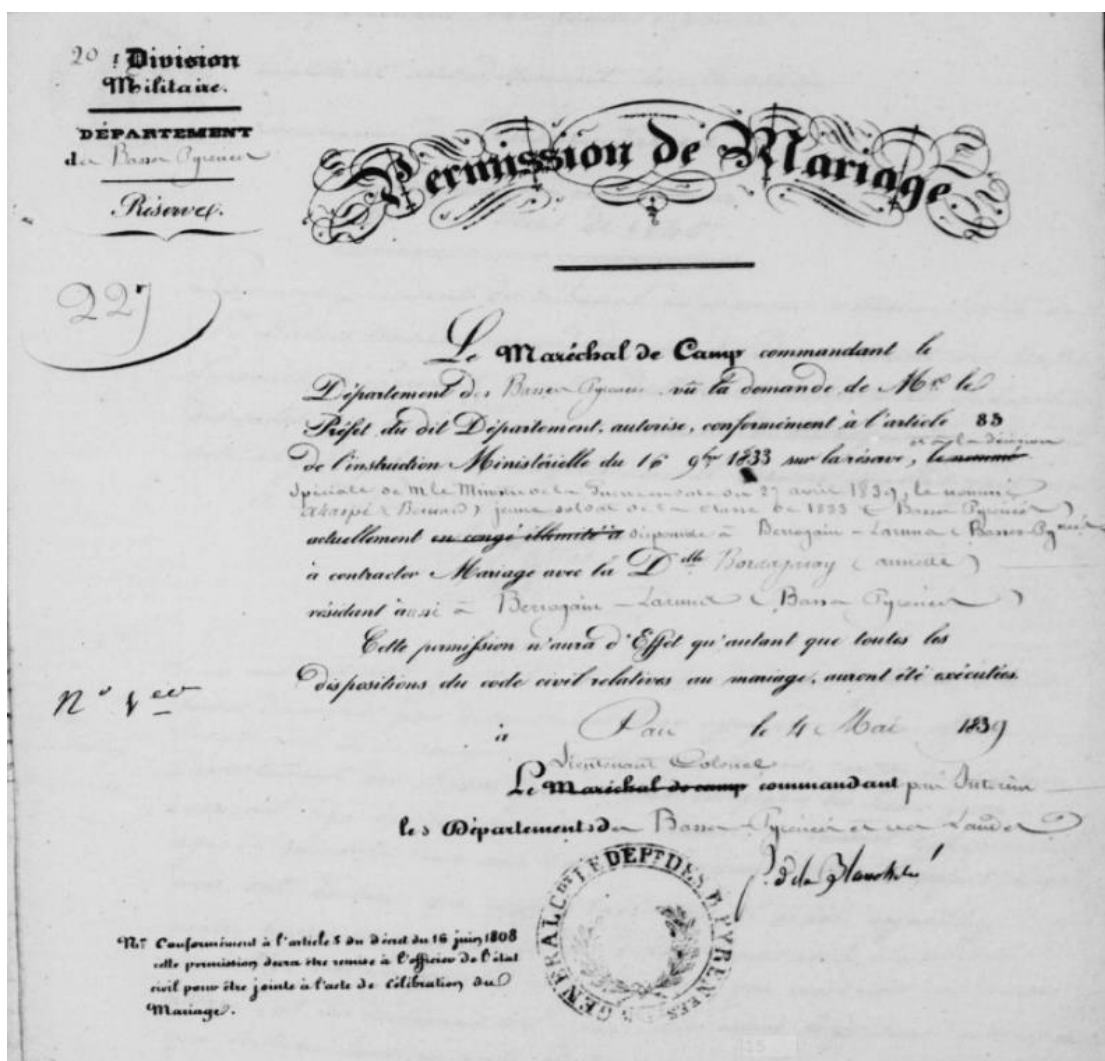 20e Division
Militaire.
DÉPARTEMENT
des Basses Pyrénées
Réserve.
Permission de Mariage
227
Le Maréchal de Camp commandant le
Département des Basses Pyrénées, vu la demande de Mr. le
Préfet du dit Département, autorise, conformément à l'article 85
et à la décision
de l'instruction Ministérielle du 16 9bre 1833 sur la réserve, le nommé
Spéciale de M le Ministre de la Guerre en date du 27 avril 1839, le nommé
(Bernard) jeune soldat de la classe de 1833 (Basses Pyrénées)
actuellement en congé illimité à disponible à Berrogain-Laruns (Basses-Pyrénées
à contracter Mariage avec la Dlle
résidant aussi à Berrogain-Laruns (Basses Pyrénées)
Cette permission n'aura d'Effet qu'autant que toutes les
dispositions du code civil relatives au mariage, auront été exécutées.
N° 1er
à Pau le 4 Mai 1839
Lieutenant Colonel
Le Maréchal de camp commandant par Interim
les Départements des Basses Pyrénées et des Landes
GENERAL CDT LE DEPT. DES B. PYRENEES
Nta Conformément à l'article 3 du décret du 16 juin 1808
cette permission devra être remise à l'officier de l'état
civil pour être jointe à l'acte de célébration du
Mariage.